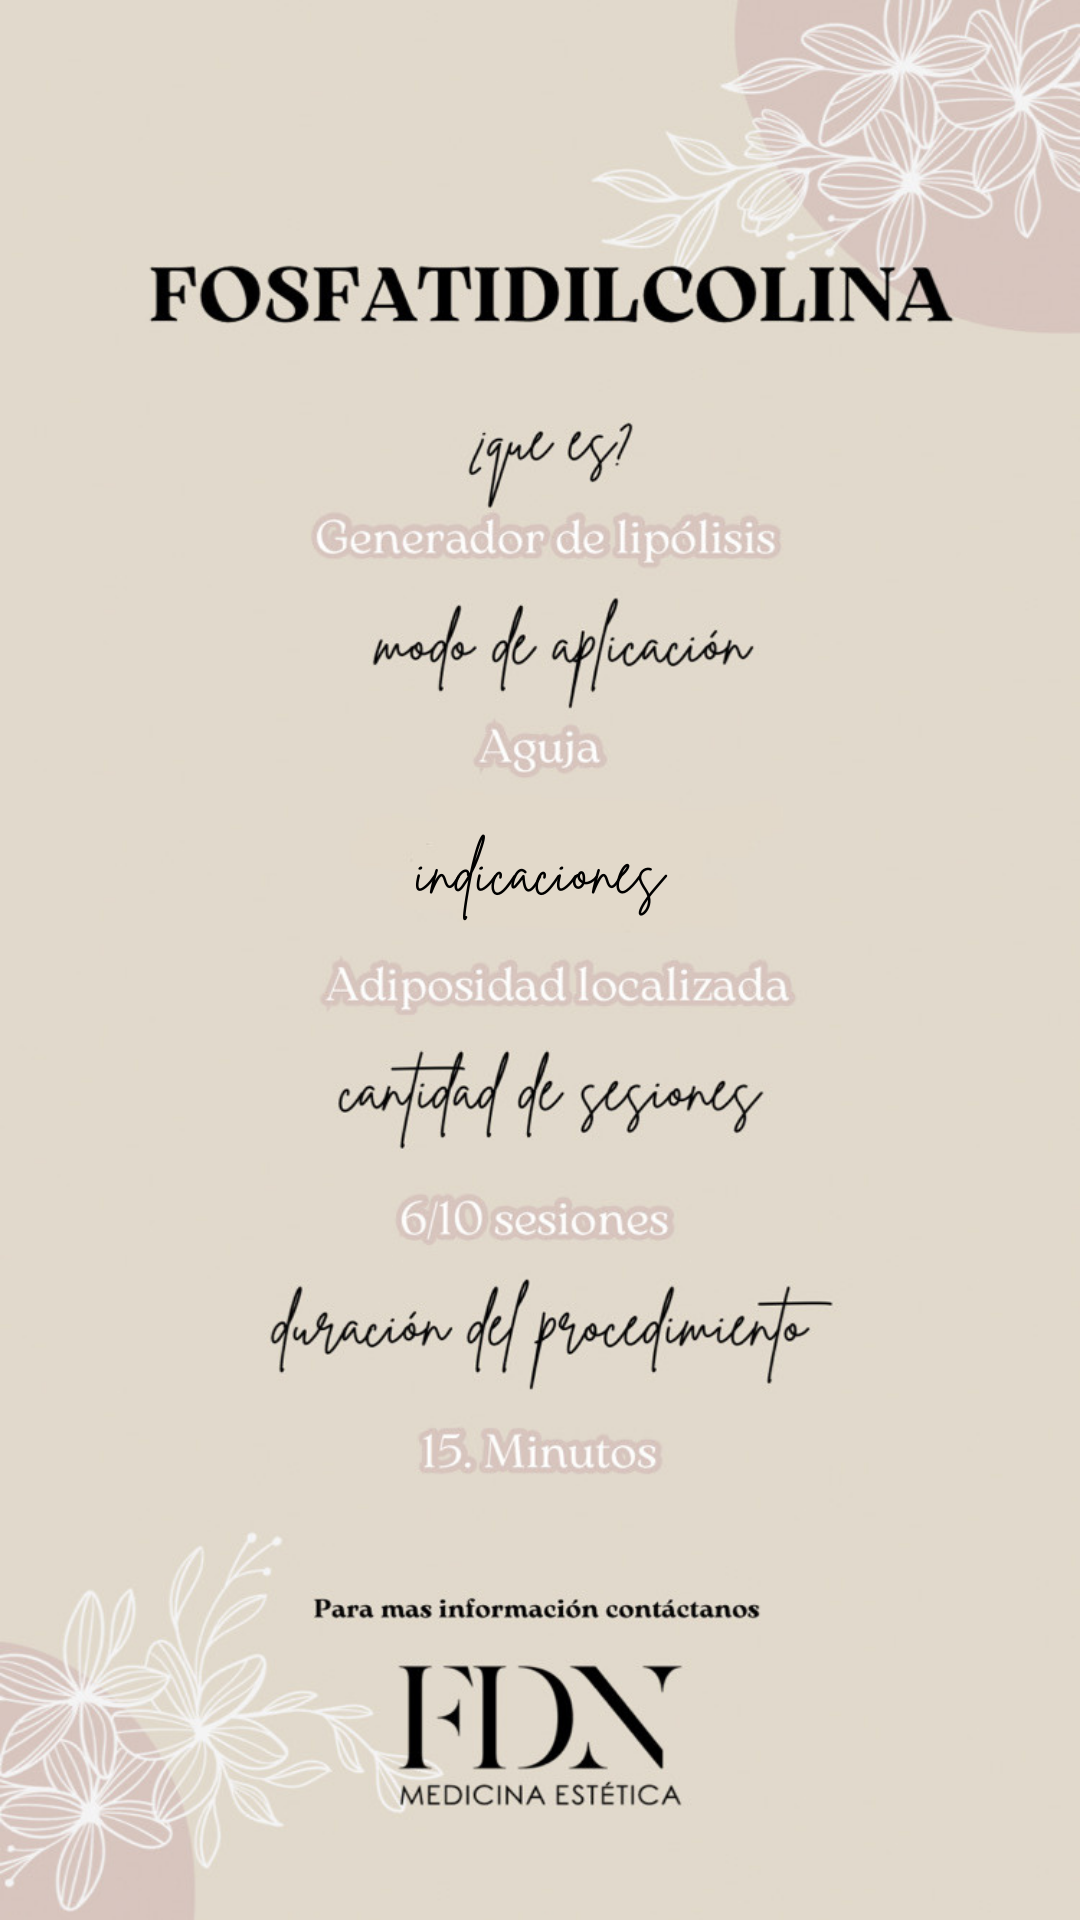 FOSFATIDILCOLINA
¿que es?
Generador de lipólisis
modo de aplicación
Aguja
indicaciones
Adiposidad localizada
cantidad de sesiones
6/10 sesiones
duración del procedimiento
15. Minutos
Para mas información contáctanos
FDN
MEDICINA ESTÉTICA